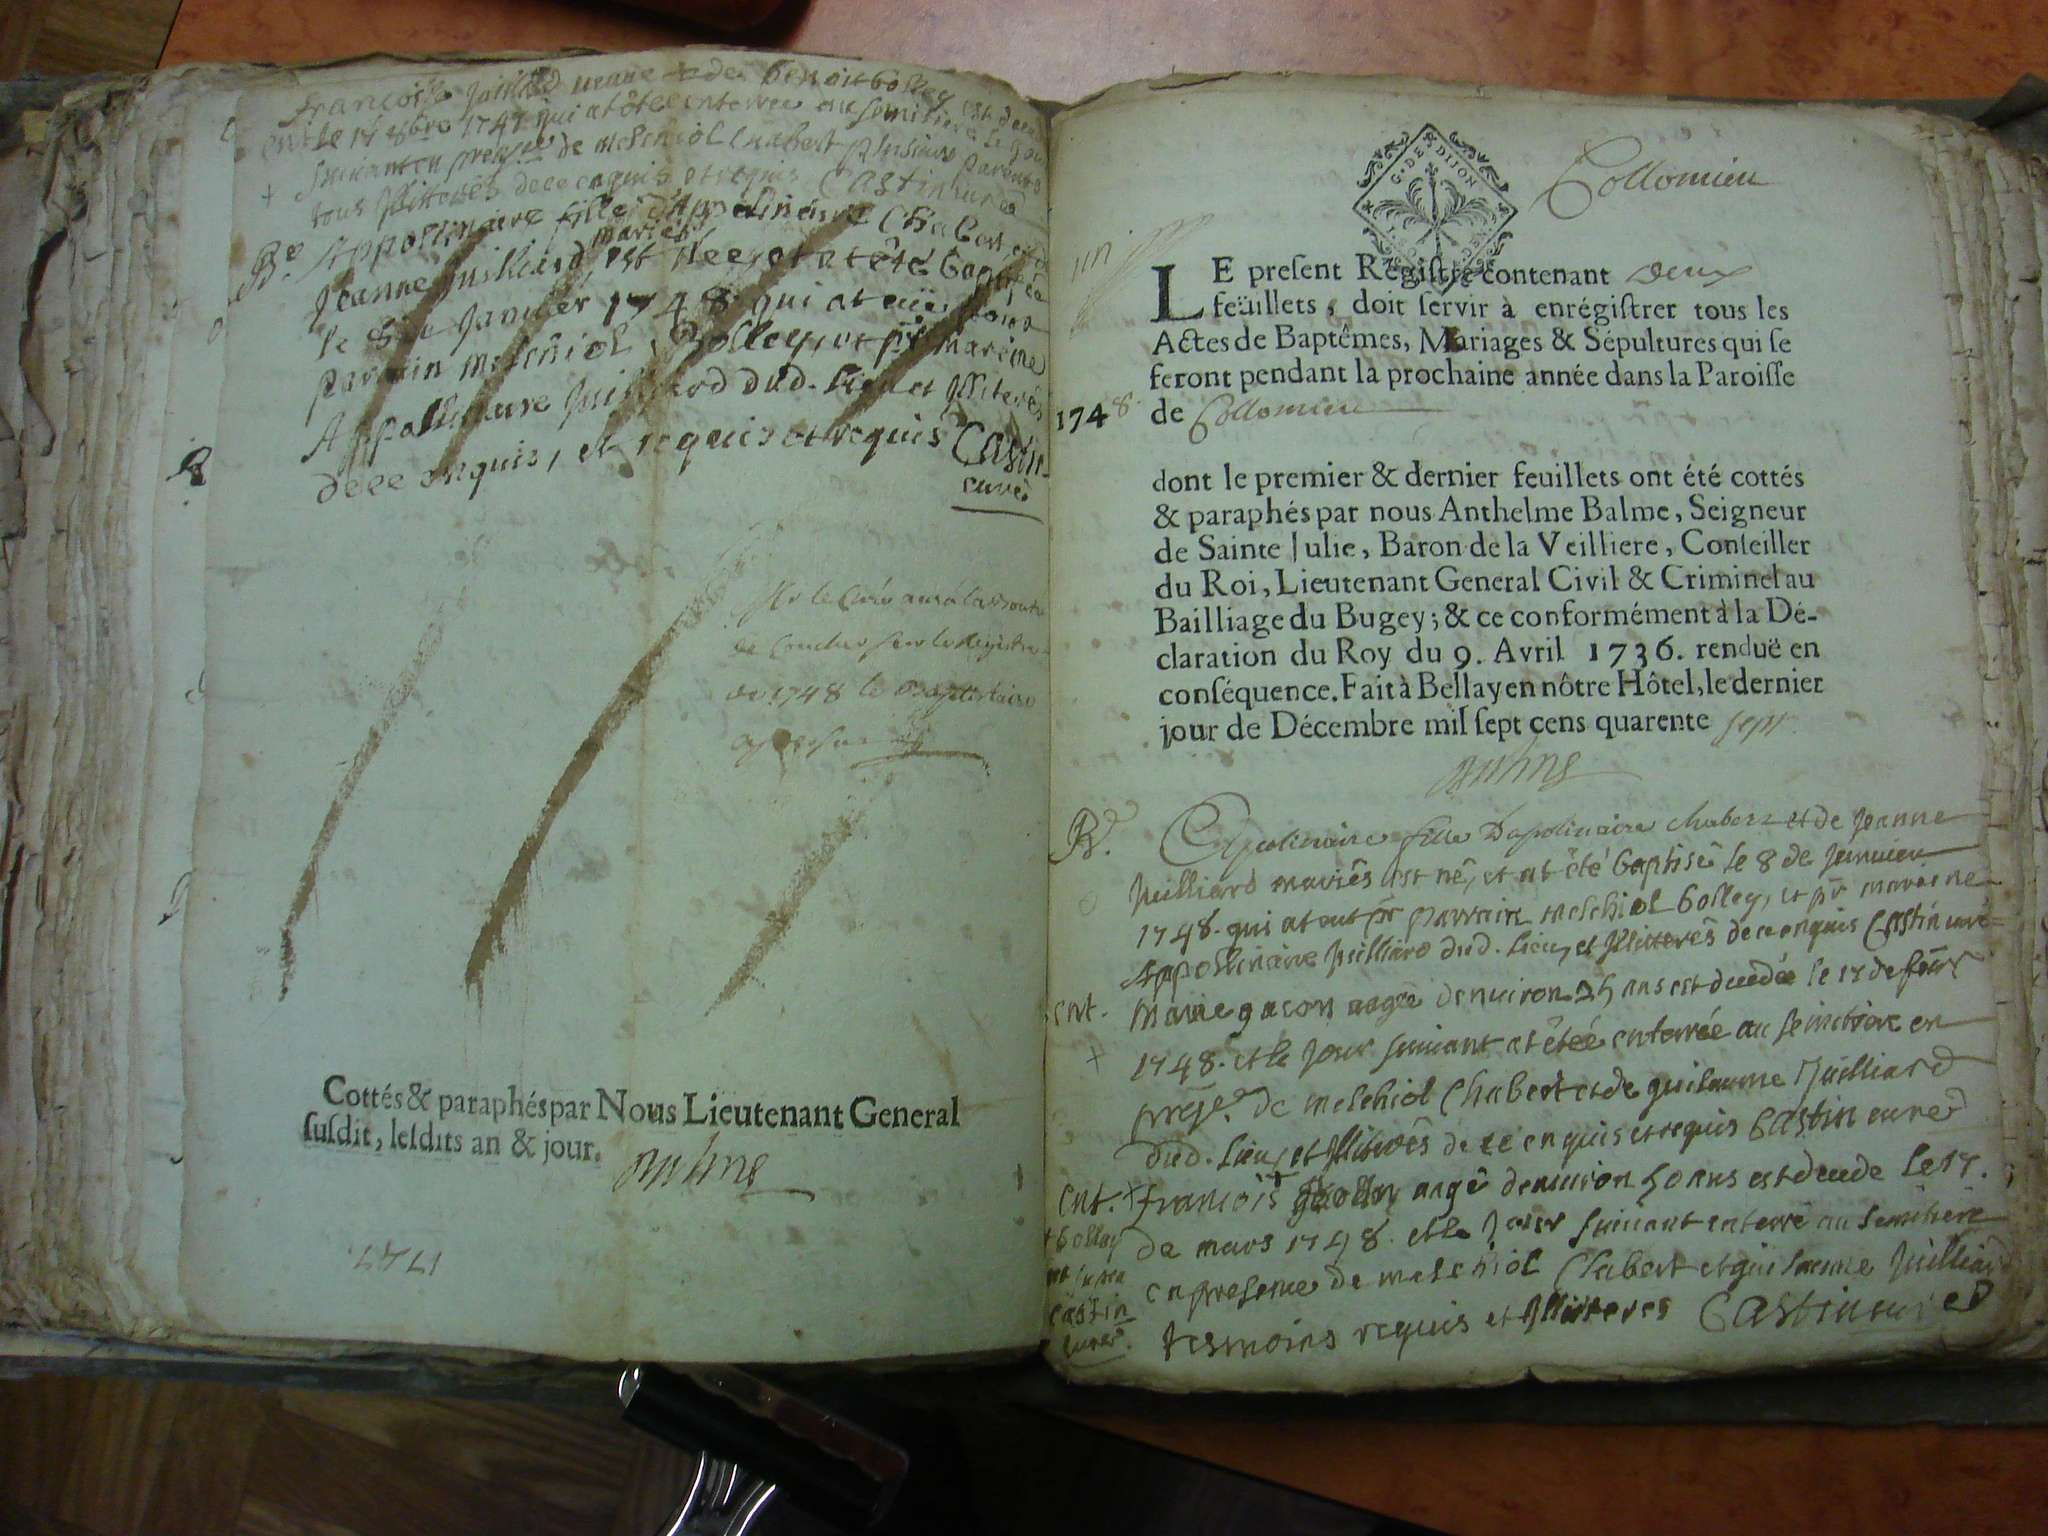 françoise juillard veuve de benoit bolley est deced
ent le 17 8bre 1747 qui at ôtée enterrée au semitiere le jour
suivant en presence de melchiol chabert plusieurs parents
tous jllitterés de ce enquis et requis Castin curé
Be. Appollinaire fille d'Appolinaire Chabert et de
mariés
Jeanne juilliard, est née, et at été baptisée
le 8 de janvier 1748 qui at eü pour
parrain melchiol Bolley, et pr mareine
Appollinaire juilliard dud. lieu et jlliterés
de ce enquis, et requis et requis Castin
curé
Mr le Curé aura la bonté
de coucher sur le Registre
de 1748 le Baptistaire
Cottés & paraphés par Nous Lieutenant General
susdit, lesdits an & jour.
1747
G. DE DIJON
Collomieu
un
LE present Registre contenant deux
feüillets, doit servir à enrégistrer tous les
Actes de Baptêmes, Mariages & Sépultures qui se
feront pendant la prochaine année dans la Paroisse
1748. de Collomieu
dont le premier & dernier feuillets ont été cottés
& paraphés par nous Anthelme Balme, Seigneur
de Sainte Julie, Baron de la Veilliere, Conseiller
du Roi, Lieutenant General Civil & Criminel au
Bailliage du Bugey; & ce conformément à la Dé-
claration du Roy du 9. Avril 1736. renduë en
conséquence. Fait à Bellay en nôtre Hôtel, le dernier
jour de Décembre mil sept cens quarente sept
Be. Apolinaire fille Dapolinaire chabert et de jeanne
juilliard mariês est nê, et at êté baptisê le 8 de janvier
1748. qui at eut pr parrain melchiol bolley, et pr maraine
Appollinaire juilliard dud. lieu, et jllitterês de ce enquis Castin curé
ent. marie gacon aagée denviron ans est decedée le 17 de
1748. et le jour suivant at êtéé enterrée au semitiere en
prese. de melchiol Chabert et de guilaume juilliard
dud. lieu, et jllitterês de ce enquis et requis Castin curé
ent. françois aagê denviron 50 ans est decede le 17.
+ bolley de mars 1748. et le jour suivant enterré au semitiere
en presence de melchiol Chabert et guilaume juilliard
Castin tesmoins requis et jlliteres Castin curé
curé.